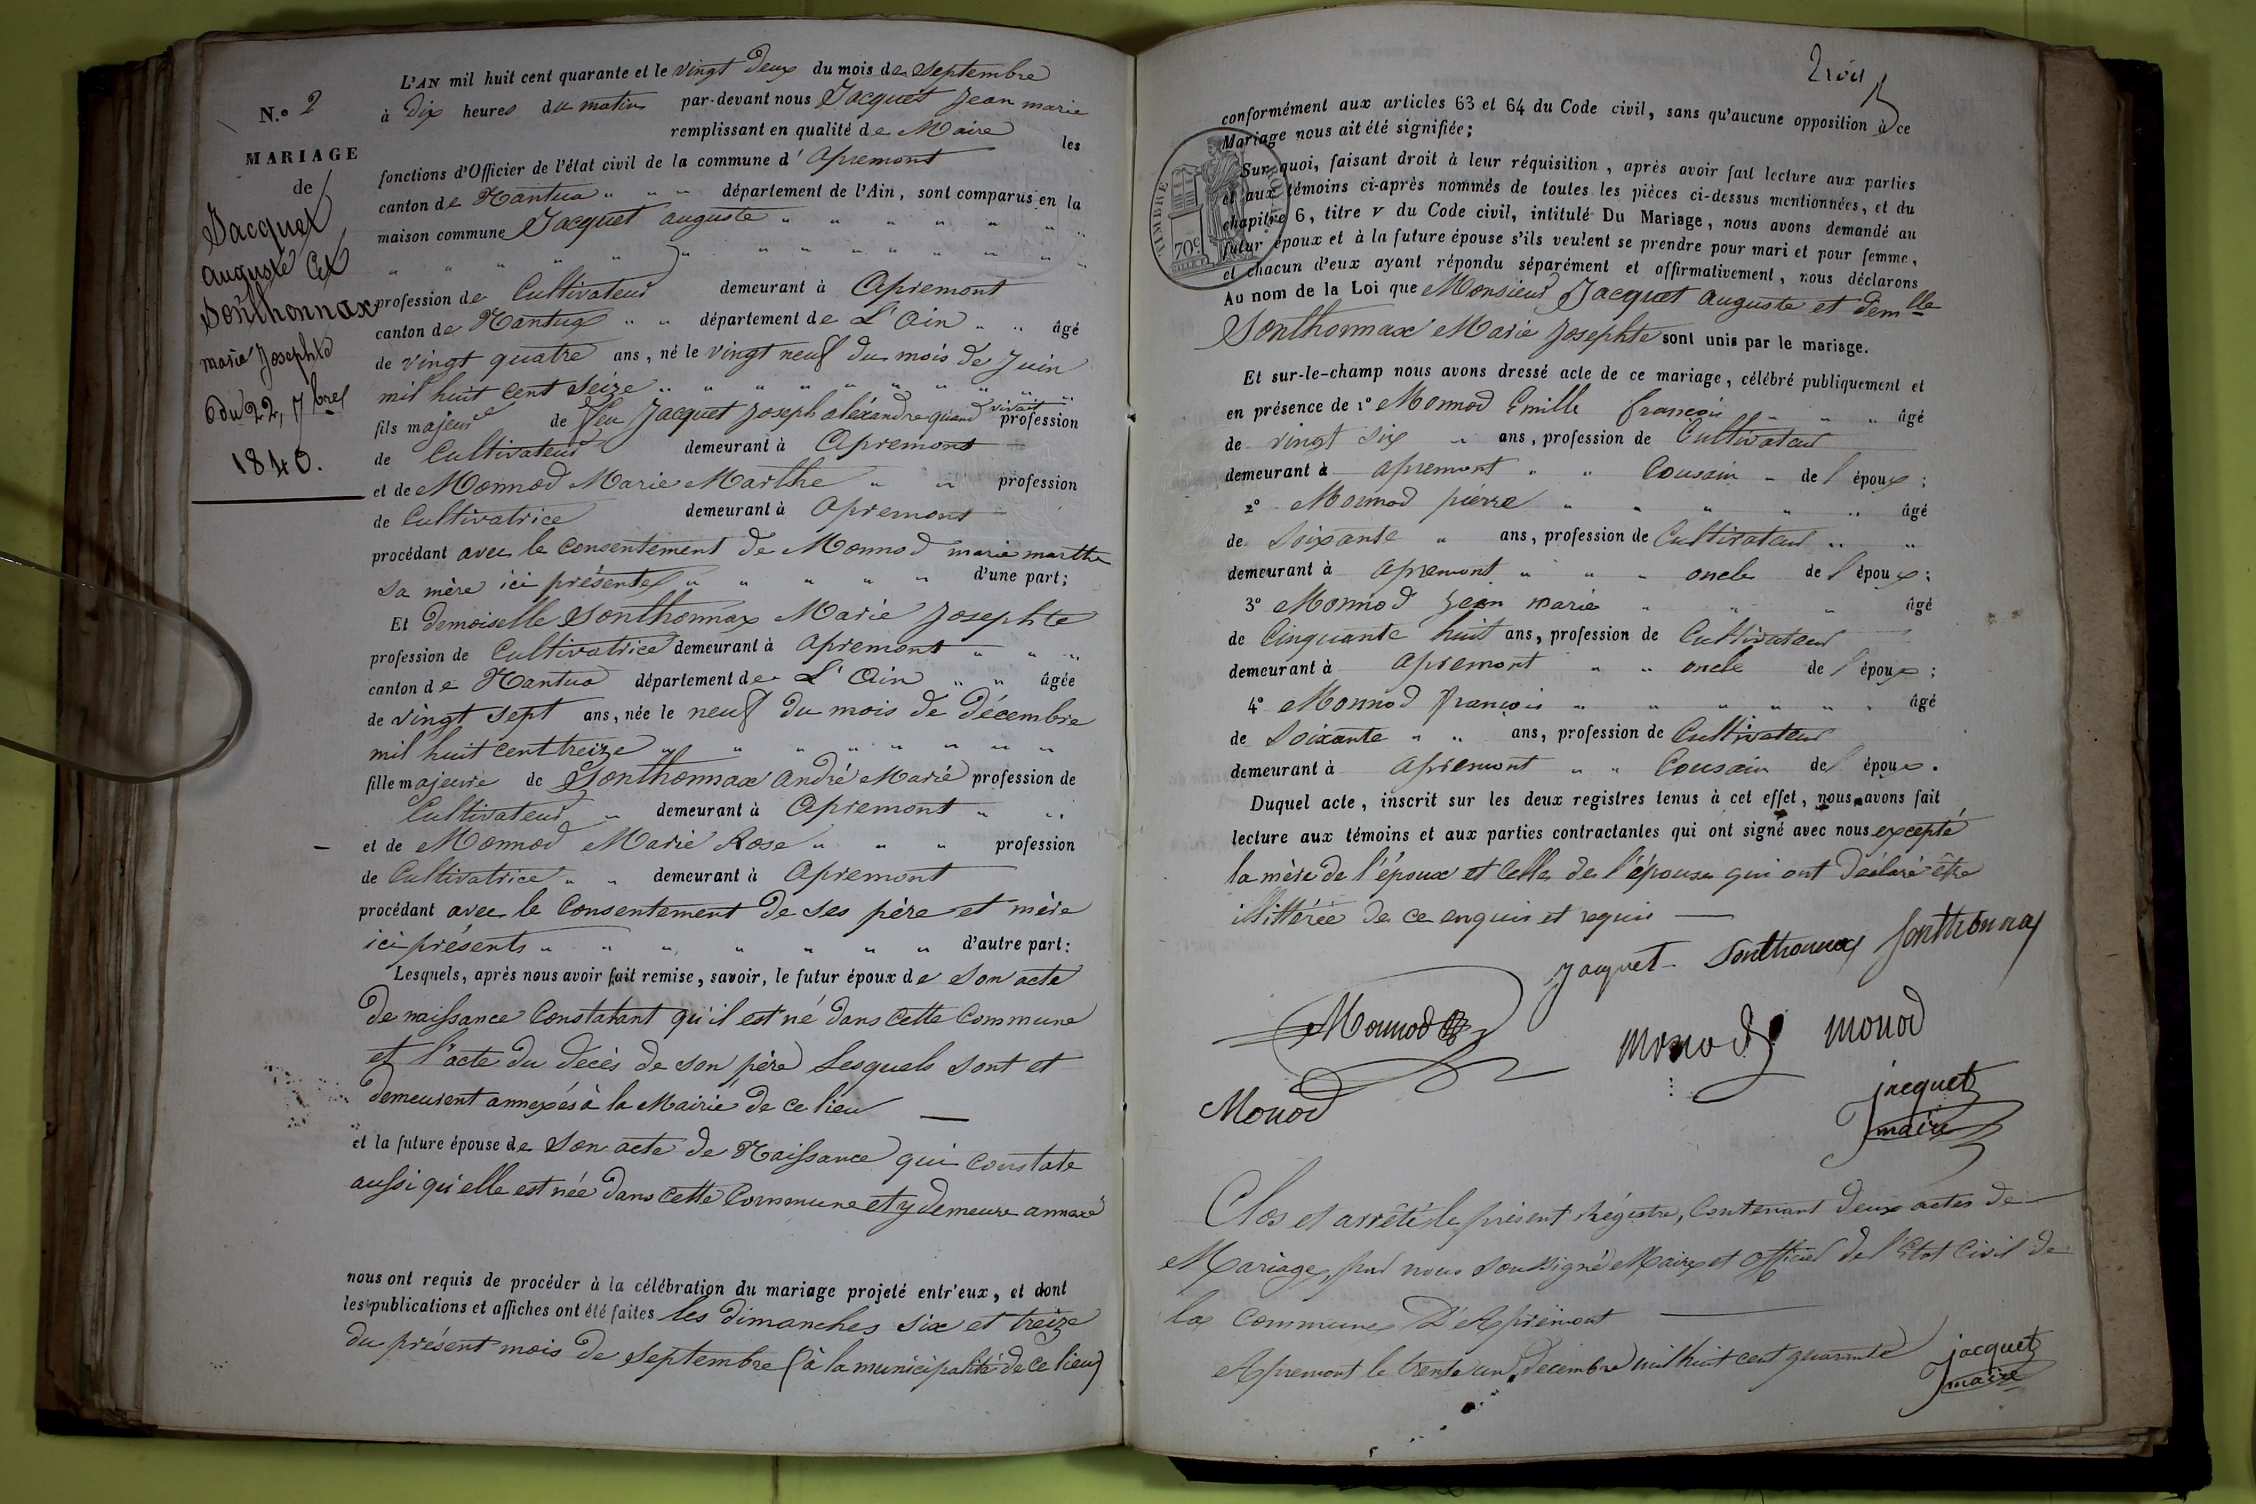 L'AN mil huit cent quarante et le vingt deux du mois de septembre
N.o 2
à dix heures du matin par-devant nous Jacquet Jean marie
remplissant en qualité de Maire les
MARIAGE
fonctions d'Officier de l'état civil de la commune d'apremont
de
canton de Nantua " " " département de l'Ain, sont comparus en la
Jacquet
maison commune Jacquet auguste " " " " " " "
auguste Et
Sonthonnax
profession de Cultivateur demeurant à Apremont
canton de Nantua " " département de L'Ain " " âgé
marie Josephte
de vingt quatre ans, né le vingt neuf du mois de Juin
du 22, 7bre
mil huit cent seize " " " " " " " " "
fils majeur de feu Jacquet Joseph aléxandre quand vivait profession
1840.
de Cultivateur demeurant à Apremont
et de Monnod Marie Marthe " " profession
de Cultivatrice demeurant à Apremont
procédant avec le consentement de Monnod marie marthe
sa mère ici présente " " " " " d'une part;
Et demoiselle Sonthonnax Marie Josephte
profession de Cultivatrice demeurant à apremont " " "
canton de Nantua département de L'Ain " " âgée
de vingt sept ans, née le neuf du mois de décembre
mil huit cent treize " " " " " " "
fille majeure de Sonthonnax andré Marie profession de
Cultivateur " demeurant à Apremont " "
et de Monnod Marie Rose " " " profession
de Cultivatrice " " demeurant à Apremont
procédant avec le Consentement de ses père et mère
ici présents " " " " " " " d'autre part:
Lesquels, après nous avoir fait remise, savoir, le futur époux de son acte
de naissance Constatant qu'il est né dans Cette Commune
et l'acte du décès de son père Lesquels sont et
demeurent annexés à la Mairie de ce lieu —
et la future épouse de son acte de Naissance qui constate
aussi qu'elle est née dans cette Commune et y demeure annexé
nous ont requis de procéder à la célébration du mariage projeté entr'eux, et dont
les publications et affiches ont été faites les dimanches six et treize
du présent mois de septembre (à la municipalité de ce lieu)
conformément aux articles 63 et 64 du Code civil, sans qu'aucune opposition à ce
Mariage nous ait été signifiée;
Sur quoi, faisant droit à leur réquisition, après avoir fait lecture aux parties
et aux témoins ci-après nommés de toutes les pièces ci-dessus mentionnées, et du
chapitre 6, titre V du Code civil, intitulé Du Mariage, nous avons demandé au
futur époux et à la future épouse s'ils veulent se prendre pour mari et pour femme,
et chacun d'eux ayant répondu séparément et affirmativement, nous déclarons
TIMBRE
70c
Au nom de la Loi que Monsieur Jacquet auguste et demlle
Sonthonnax Marie Josephte sont unis par le mariage.
Et sur-le-champ nous avons dressé acte de ce mariage, célébré publiquement et
en présence de 1o Monnod Emille françois " " " âgé
de vingt six " ans, profession de Cultivateur
demeurant à apremont " " Cousain " de l'époux;
2o Monnod pierre " " " " " âgé
de Soixante " ans, profession de Cultivateur " "
demeurant à apremont " " " oncle de l'époux;
3o Monnod Jean marie " " " âgé
de Cinquante huit ans, profession de Cultivateur
demeurant à apremont " " oncle de l'époux;
4o Monnod françois " " " " " " âgé
de Soixante " " ans, profession de Cultivateur
demeurant à apremont " " Cousain de l'époux.
Duquel acte, inscrit sur les deux registres tenus à cet effet, nous avons fait
lecture aux témoins et aux parties contractantes qui ont signé avec nous excepté
la mère de l'époux et Celle de l'épouse qui ont déclaré être
illittérée de ce enquis et requis —
jacquet Sonthonnax Sonthonnax
Monnod
Monod monod
Monod
jacquet
maire
Clos et arrêté le présent Régistre, Contenant deux actes de
Mariage, par nous Soussigné Maire et officier de l'Etat Civil de
la Commune D'Apremont —
Apremont le trente un décembre mil huit cent quarante
jacquet
maire